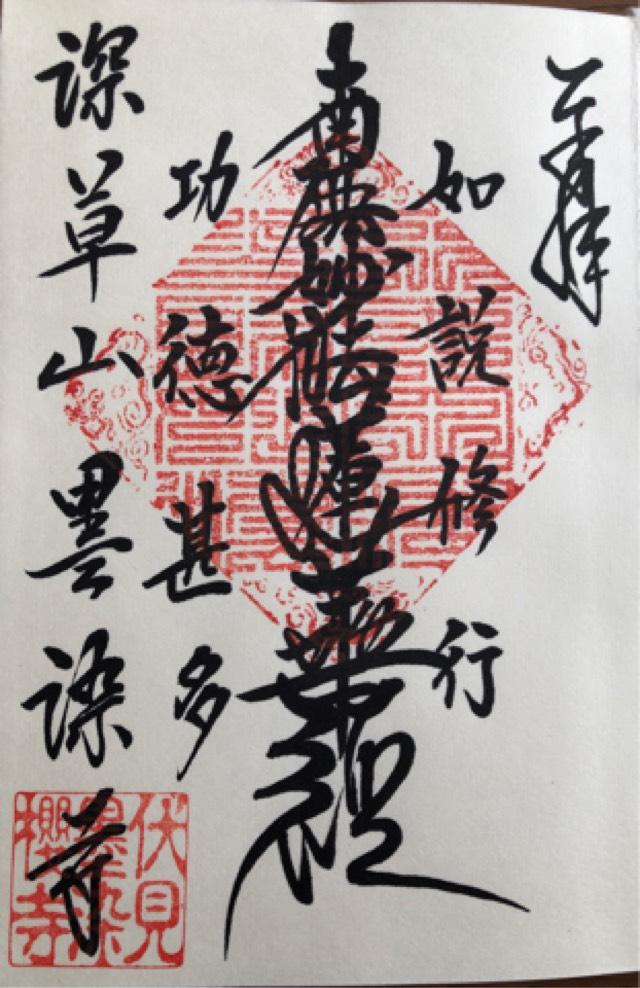 奉拝
如説修行
南無妙法蓮華経
功徳甚多
深草山墨染寺
伏見
墨染
櫻寺